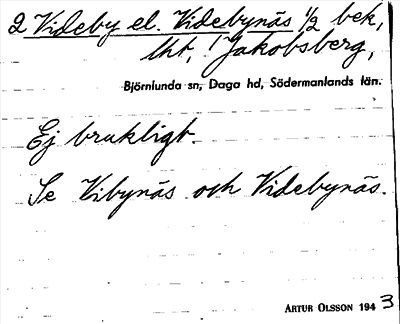 2 Videby el. Videbynäs 1/2 bek,
lht, Jakobsberg,
Björnlunda sn, Daga hd, Södermanlands län.
Ej brukligt.
Se Vibynäs och Videbynäs.
ARTUR OLSSON 1943